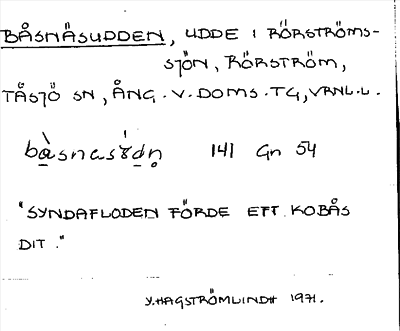 BÅSNÄSUDDEN, UDDE I RÖRSTRÖMS-
SJÖN, RÖRSTRÖM,
TÅSJÖ SN, ÅNG. V. DOMS. TG, VRNL.L.
141 Gn 54
"SYNDAFLODEN FÖRDE ETT KOBÅS
DIT."
Y. HAGSTRÖMLINDH 1971.